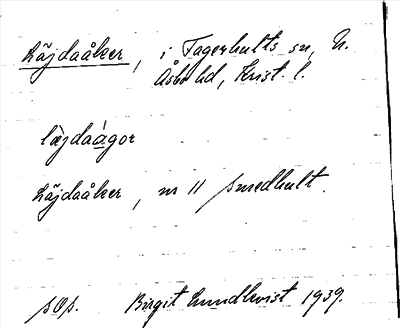 Läjdaåker, i Fagerhults sn, N.
Åsbo hd, Krist. l.
lӕjdaágor
Läjdaåker, nr 11 Smedhult.
sɷs. Birgit Lundkvist 1939.